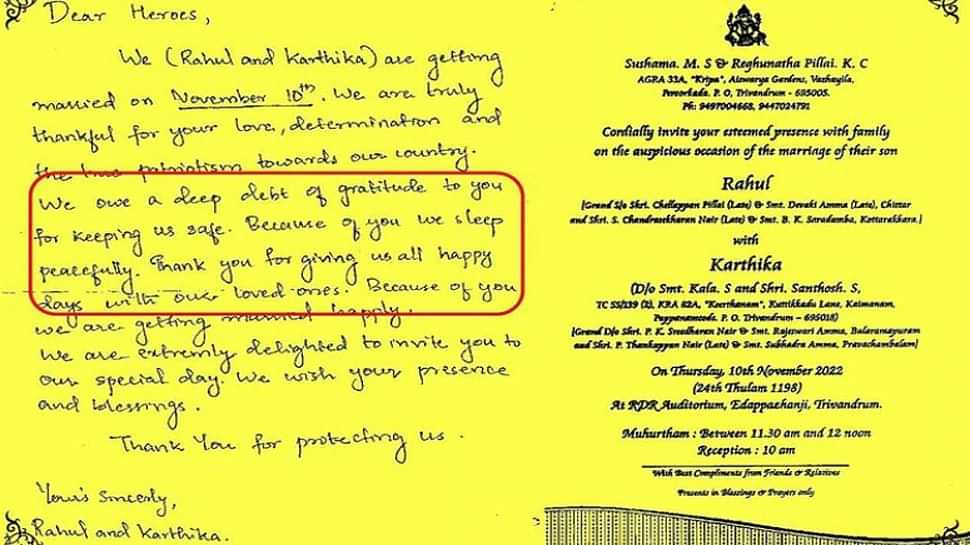 Dear Heroes,
We (Rahul and Karthika) are getting
married on November 10th. We are truly
thankful for your love, determination and
the true patriotism towards our country.
We owe a deep debt of gratitude to you
for keeping us safe. Because of you we sleep
peacefully. Thank you for giving us all happy
days with our loved ones. Because of you
we are getting married happily.
We are extremly delighted to invite you to
our special day. We wish your presence
and blessings.
Thank You for protecting us.
Your's Sincerly,
Rahul and Karthika.
Sushama. M. S & Reghunatha Pillai. K. C
AGRA 33A, "Kripa", Aiswarya Gardens, Vazhayila,
Peroorkada. P. O, Trivandrum - 695005.
Ph: 9497004668, 9447024791
Cordially invite your esteemed presence with family
on the auspicious occasion of the marriage of their son
Rahul
(Grand S/o Shri. Chellappan Pillai (Late) & Smt. Devaki Amma (Late), Chittar
and Shri. S. Chandrasekharan Nair (Late) & Smt. B. K. Saradamba, Kottarakkara.)
with
Karthika
(D/o Smt. Kala. S and Shri. Santhosh. S,
TC 55/139 (2), KRA 62A, "Keerthanam", Kuttikkadu Lane, Kaimanam,
Pappanamcode. P. O. Trivandrum – 695018)
(Grand D/o Shri. P. K. Sreedharan Nair & Smt. Rajeswari Amma, Balaramapuram
and Shri. P. Thankappan Nair (Late) & Smt. Subhadra Amma, Pravachambalam)
On Thursday, 10th November 2022
(24th Thulam 1198)
At RDR Auditorium, Edappazhanji, Trivandrum.
Muhurtham : Between 11.30 am and 12 noon
Reception : 10 am
With Best Compliments from Friends & Relations
Presents in Blessings & Prayers only